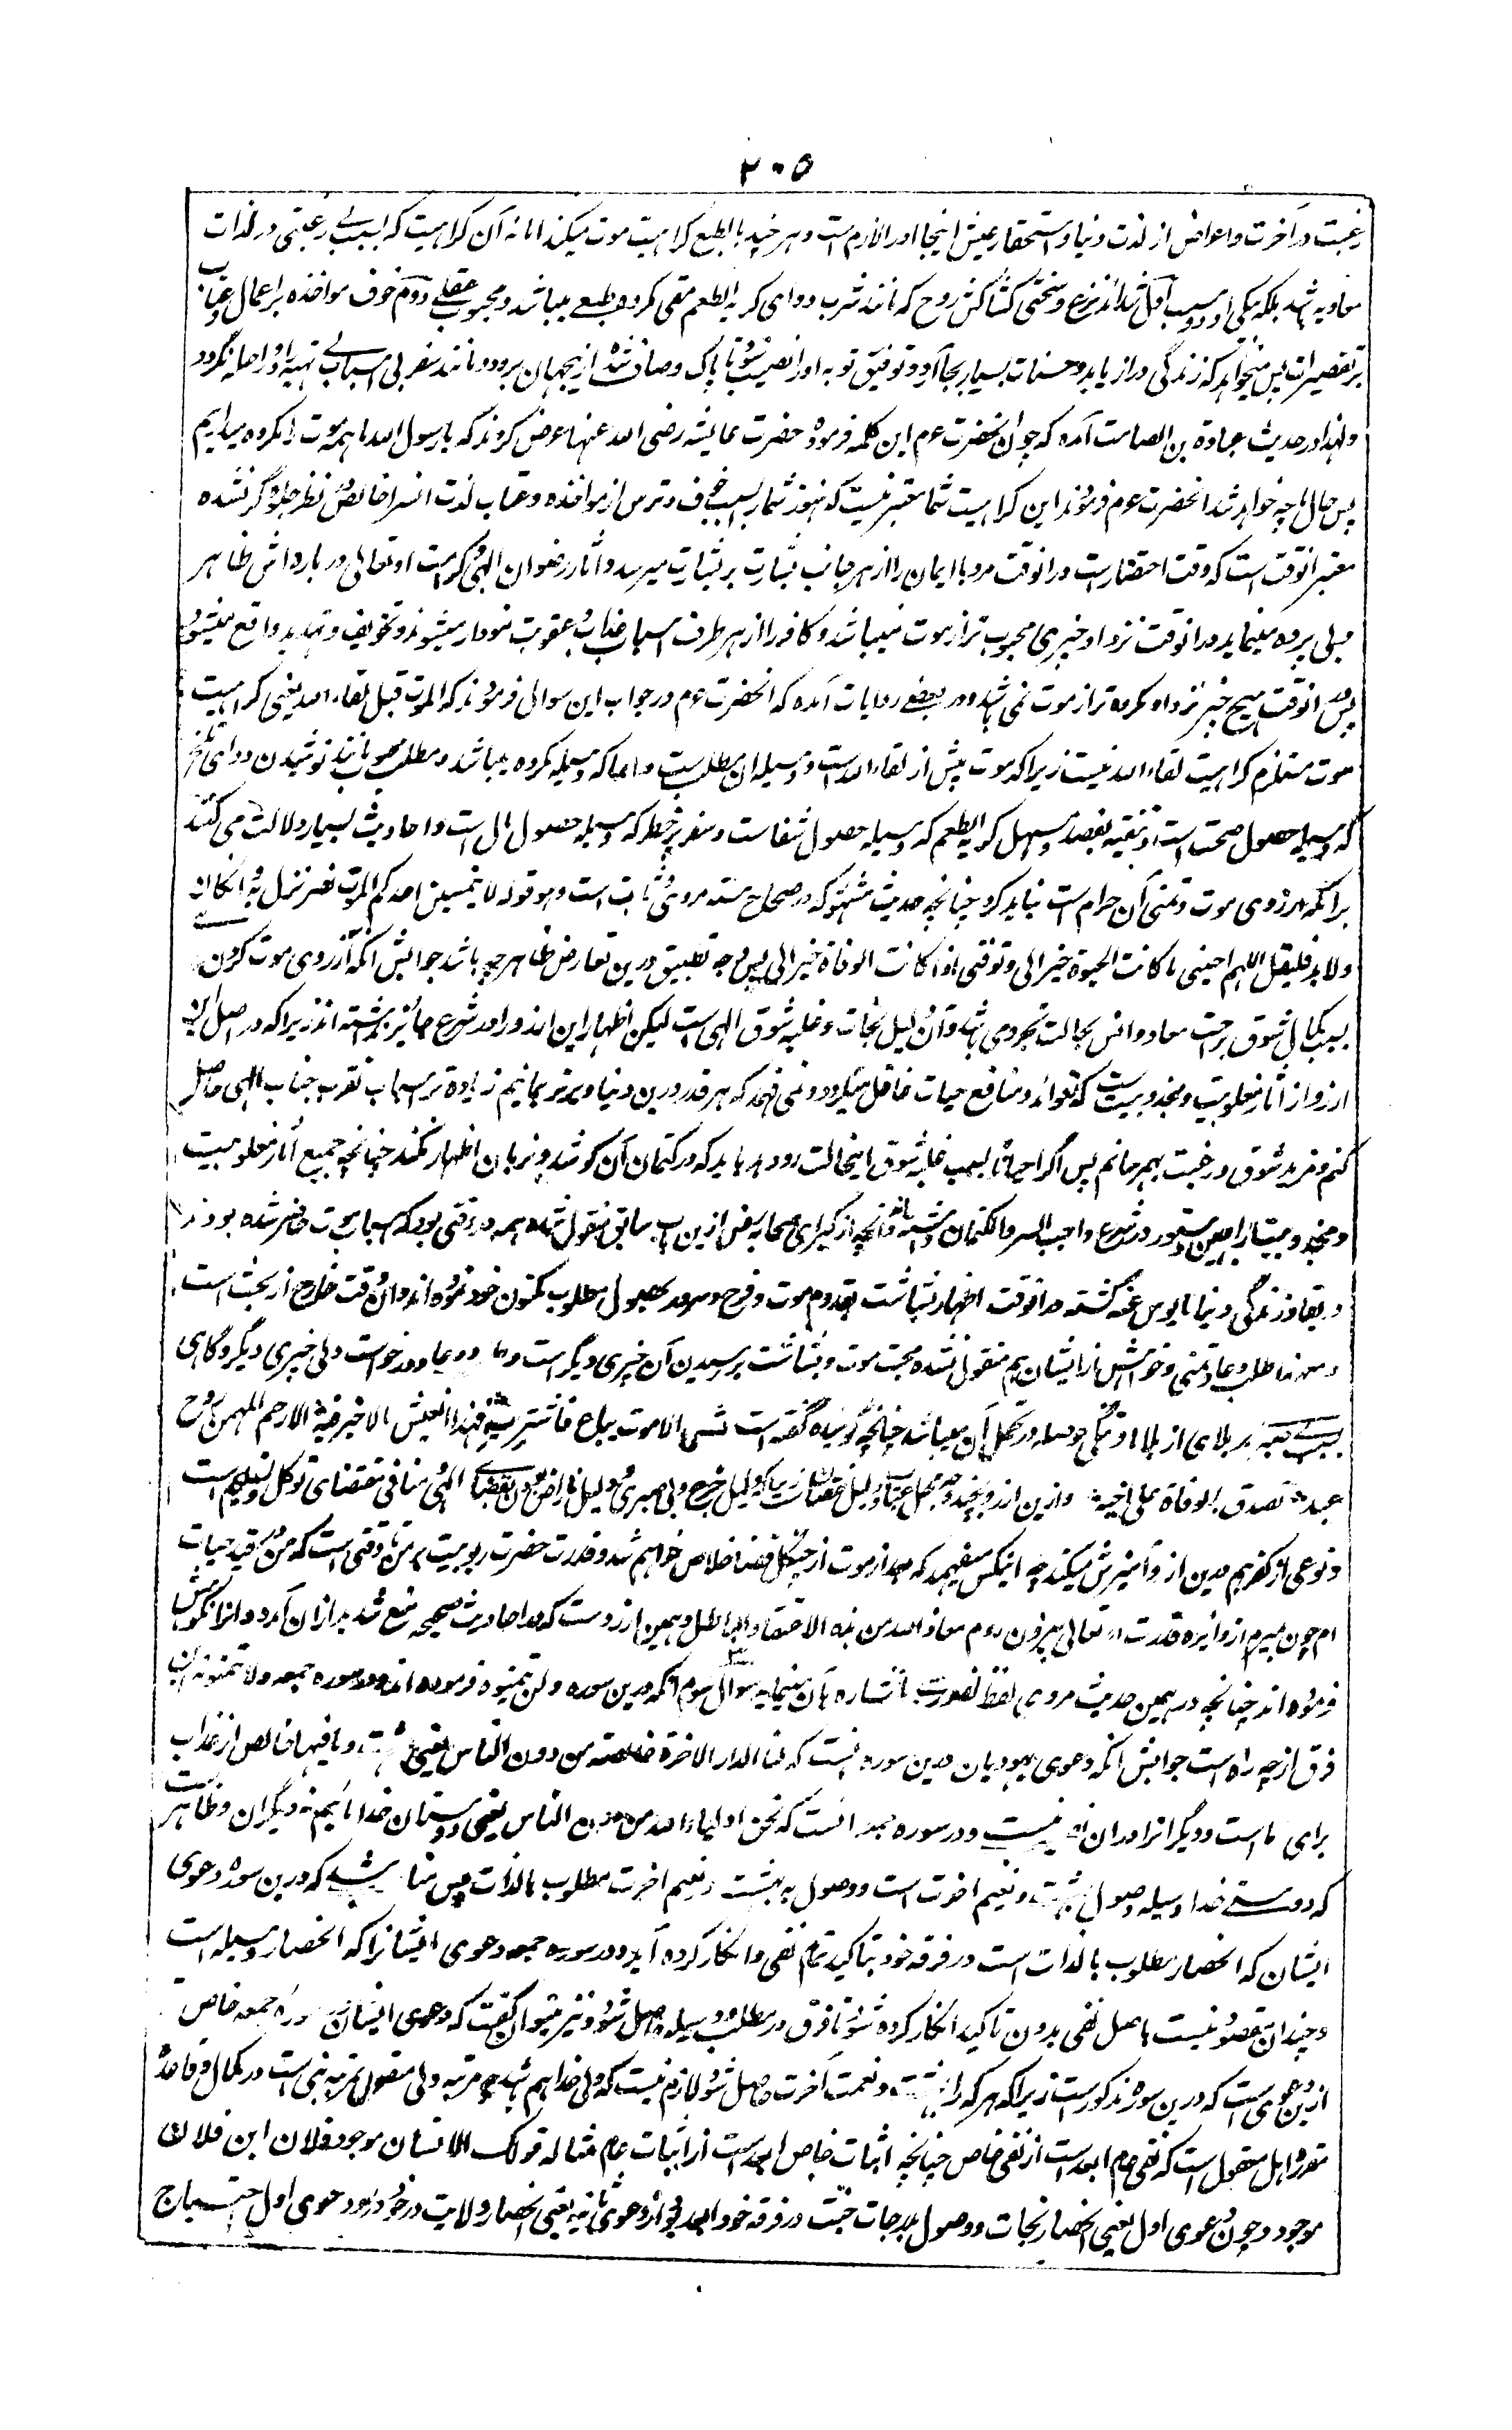 ٢٠٥
رغبت در آخرت و اعراض از لذت دنیا و استحقار عیش اینجا او را لازم است و هر چند بالطبع کراهیت موت میکند اما نه آن کراهیت که بسبب بے رغبتی در لذات
معادیه باشد بلکه یکی از دو سبب اول شدائد نزع و سختی کشاکش روح که مانند شرب دوای کریه الطعم متقی مکروه طبعے میباشد و محبوب عقلے دوم خوف مواخذه بر اعمال و عتاب
بر تقصیرات پس میخواهد که زندگی دراز یابد و حسنات بسیار بجا آرد و توفیق توبه او را نصیب شود تا پاک و صاف شده از ینجهان برود و مانند سفر بی اسبابے تهیه زاد و راحله نگردد
و لهذا در حدیث عبادة بن الصامت آمده که چون آنحضرت عم این کلمه فرمود حضرت عایشه رضی الله عنها عرض کردند که یا رسول الله ما همه موت را مکروه میداریم
پس حال ما چه خواهد شد آنحضرت عم فرمودند این کراهیت شما معتبر نیست که هنوز شما را بسبب خوف و ترس از مواخذه و عتاب لذت انسرا خالص در نظر جلوه گر نشده
معتبر آنوقت است که وقت احتضار است در آنوقت مرد با ایمان را از هر جانب بشارت بر بشارت میرسد و آثار رضوان الهی و کرامت او تعالی در باره اش ظاهر
و بی پرده مینماید در آنوقت نزد او چیزی محبوب تر از موت نمیباشد و کافر را از هر طرف اسباب عذاب و عقوبت نمودار میشوند و تخویف و تهدید واقع میشود
پس در آنوقت هیچ چیز نزد او مکروه تر از موت نمی باشد و در بعضے روایات آمده که آنحضرت عم در جواب این سوال فرمودند که الموت قبل لقاء الله یعنی کراهیت
موت مستلزم کراهیت لقاء الله نیست زیرا که موت پیش از لقاء الله است و وسیله آن مطلب است و بسا که وسیله مکروه میباشد و مطلب محبوب مانند نوشیدن دوای تلخ
که وسیله حصول صحت است و تنقیه بفصد و مسهل کریه الطعم که وسیله حصول شفاست و سفر پر خطر که وسیله حصول مال است و احادیث بسیار دلالت می کنند
بر آنکه آرزوی موت و تمنی آن حرام است نباید کرد چنانچه حدیث مشهور که در صحاح سته مروی و ثابت است و هو قوله لا یتمنین احدکم الموت لضر نزل به و ان کان
ولا بد فلیقل اللهم احینی ما کانت الحیوة خیرا لی و توفنی اذا کانت الوفاة خیرا لی پس وجه تطبیق درین تعارض ظاهر چه باشد جوابش آنکه آرزوی موت کردن
بسبب کمال شوق براحت معاد و انس بحالت تجرد می باشد و آن دلیل نجات و غلبه شوق الهی است لیکن اظهار این را در شرع جائز نداشته اند زیرا که در اصل این
آرزو از آثار مغلوبیت و مجذوبیت است که از فوائد و منافع حیات غافل میگردد و نمی فهمد که هر قدر درین دنیا دیرتر بمانیم زیاده تر اسباب تقرب جناب الهی حاصل
کنم و مزید شوق و رغبت بهم رسانم پس اگر احیانا بسبب غلبه شوق اینحالت رو دهد باید که در کتمان آن کوشد و بزبان اظهار نکند چنانچه جمیع آثار مغلوبیت
و مجذوبیت را بهمین دستور در شرع واجب الستر و الکتمان داشته اند و آنچه از کبرای صحابه پیش ازین باب سابق منقول شده همه در وقتی بود که اسباب موت حاضر شده بودند
و بقا و زندگی دنیا مایوس عنه گشته در آنوقت اظهار بشاشت بقدوم موت و فرح و سرور بحصول مطلوب مکنون خود نموده اند و آن وقت خارج از بحث است
و معهذا طلب و دعا و تمنی و خواهش از ایشان هم منقول نشده محبت موت و بشاشت برسیدن آن چیزی دیگر است و دعا و درخواست وی چیزی دیگر و گاهی
بسبب غلبه بلای از بلاها و تنگی حوصله در تحمل آن میباشد چنانچه گوینده گفته است شعر الا موت یباع فاشتریه فهذا العیش ما لا خیر فیه الا رحم المهیمن روح
عبد تصدق بالوفاة علی اخیه و ازین آرزو
و نوعی از کفر هم درین آرزو آمیزش میکند چه اینکس میفهمد که بعد از موت از چنگل قضا خلاص خواهم شد و قدرت حضرت ربوبیت بر من تا وقتی است که من در قید حیات
ام چون میرم از دائره قدرت او تعالی بیرون روم معاذ الله من هذه الاعتقاد الباطل و همین آرزوست که در احادیث صحیحه منع شدید از آن آمده و از آن نکوهش
فرموده اند چنانچه در همین حدیث مروی لفظ لضر اشاره بآن مینماید سوال سوم آنکه درین سوره ولن یتمنوه فرموده اند و در سوره جمعه ولا یتمنونه این
فرق از چه راه است جوابش آنکه دعوی یهودیان درین سوره اینست که لنا الدار الاخرة خالصة من دون الناس یعنی بهشت و ما فیها خالص از عذاب
برای ما است و دیگرانرا در آن نصیب نیست و در سوره جمعه آنست که نحن اولیاء الله من دون الناس یعنی دوستان خدا مائیم نه دیگران و ظاهر است
که دوستی خدا وسیله وصول بهشت و نعیم آخرت است و وصول به بهشت و نعیم آخرت مطلوب بالذات پس مناسب شد که درین سوره دعوی
ایشان که انحصار مطلوب بالذات است در فرقه خود بتاکید تمام نفی و انکار کرده آید و در سوره جمعه دعوی ایشانرا که انحصار وسیله است
و چندان مقصود نیست باصل نفی بدون تاکید انکار کرده شود تا فرق در مطلوب و وسیله حاصل شود و نیز میتوان گفت که دعوی ایشان در سوره جمعه خاص
ازین دعوی است که درین سوره مذکور است زیرا که هر که را بهشت و نعمت آخرت حاصل شود لازم نیست که ولی خدا هم باشد چه مرتبه ولی متصل بمرتبه نبی است در کمال و قاعده
مقرر اهل معقول است که نفی عام ابعد است از نفی خاص چنانچه اثبات خاص ابعد است از اثبات عام مثاله قولک الانسان موجود فلان ابن فلان
موجود و چون دعوی اول یعنی انحصار نجات و وصول بدرجات جنت در فرقه خود ابعد بود از دعوی ثانیه یعنی انحصار ولایت در خود در دعوی اول احتیاج